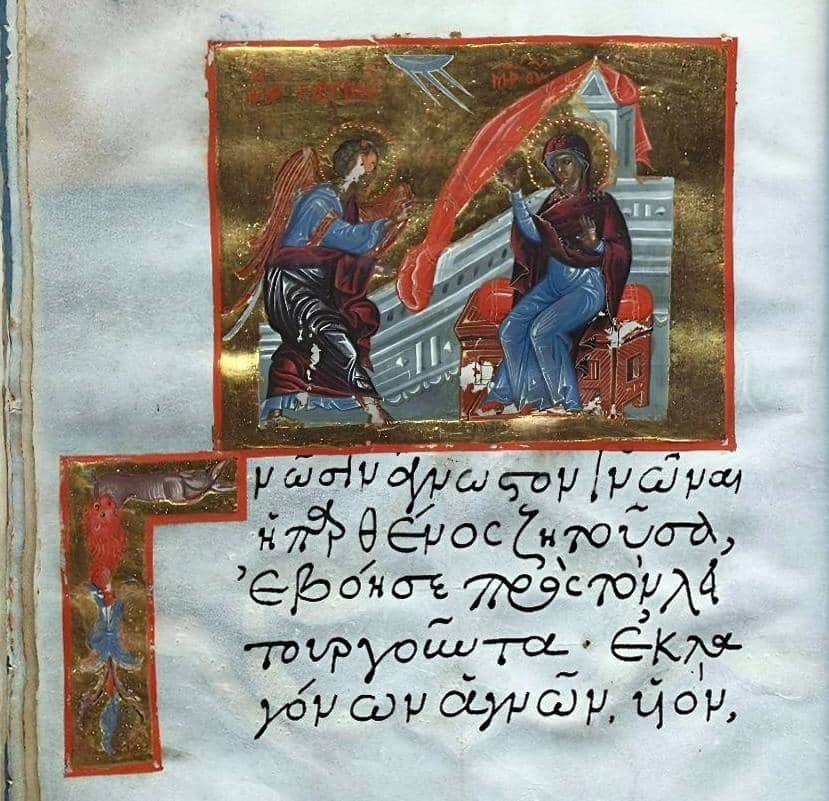 ΜΡ ΘΥ
Γνῶσιν ἄγνωστον γνῶναι
ἡ παρθένος ζητοῦσα,
ἐβόησε πρὸς τὸν λει
τουργοῦντα · ἐκ λα
γόνων ἁγνῶν, υἱὸν,